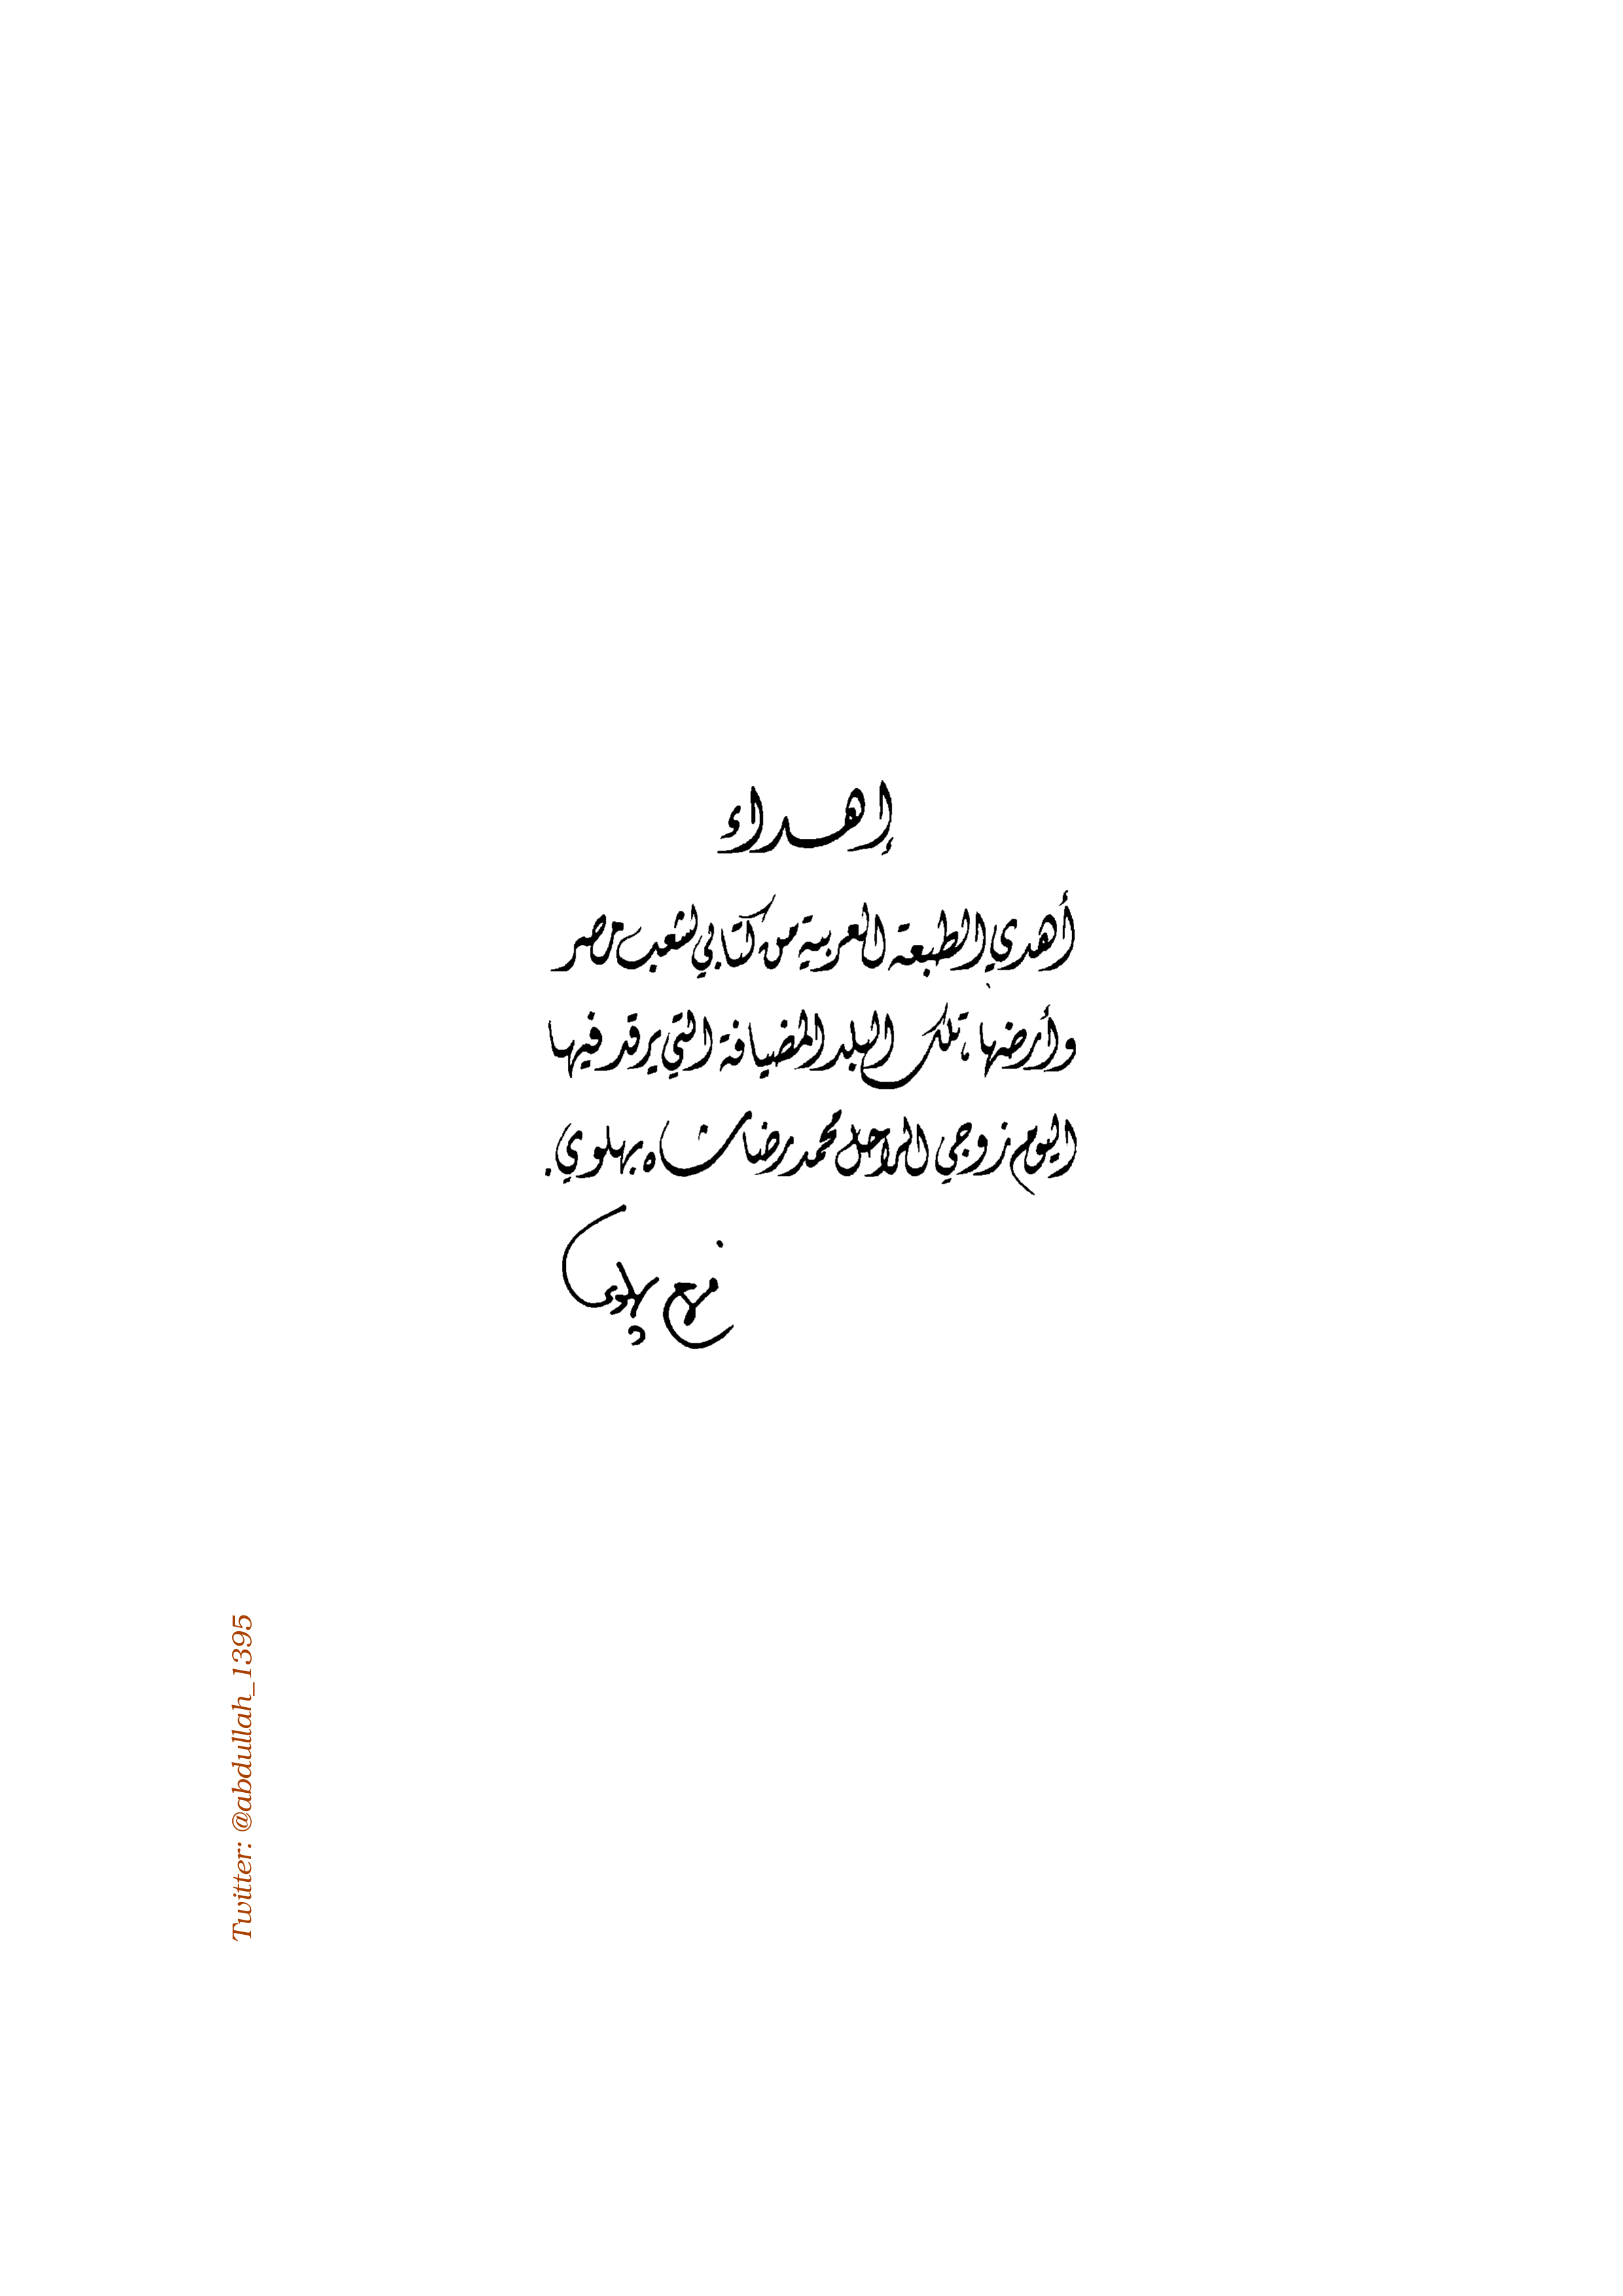 إهداء
أهدي الطبعة العربية من كتابي لشعب مصر
وأرضها، تلك البلد المضيافة التي يرقد فيها
اليوم زوجي الراحل محمد رضا شاه بهلوي.
فرح پهلوی
Twitter: @abdullah_1395